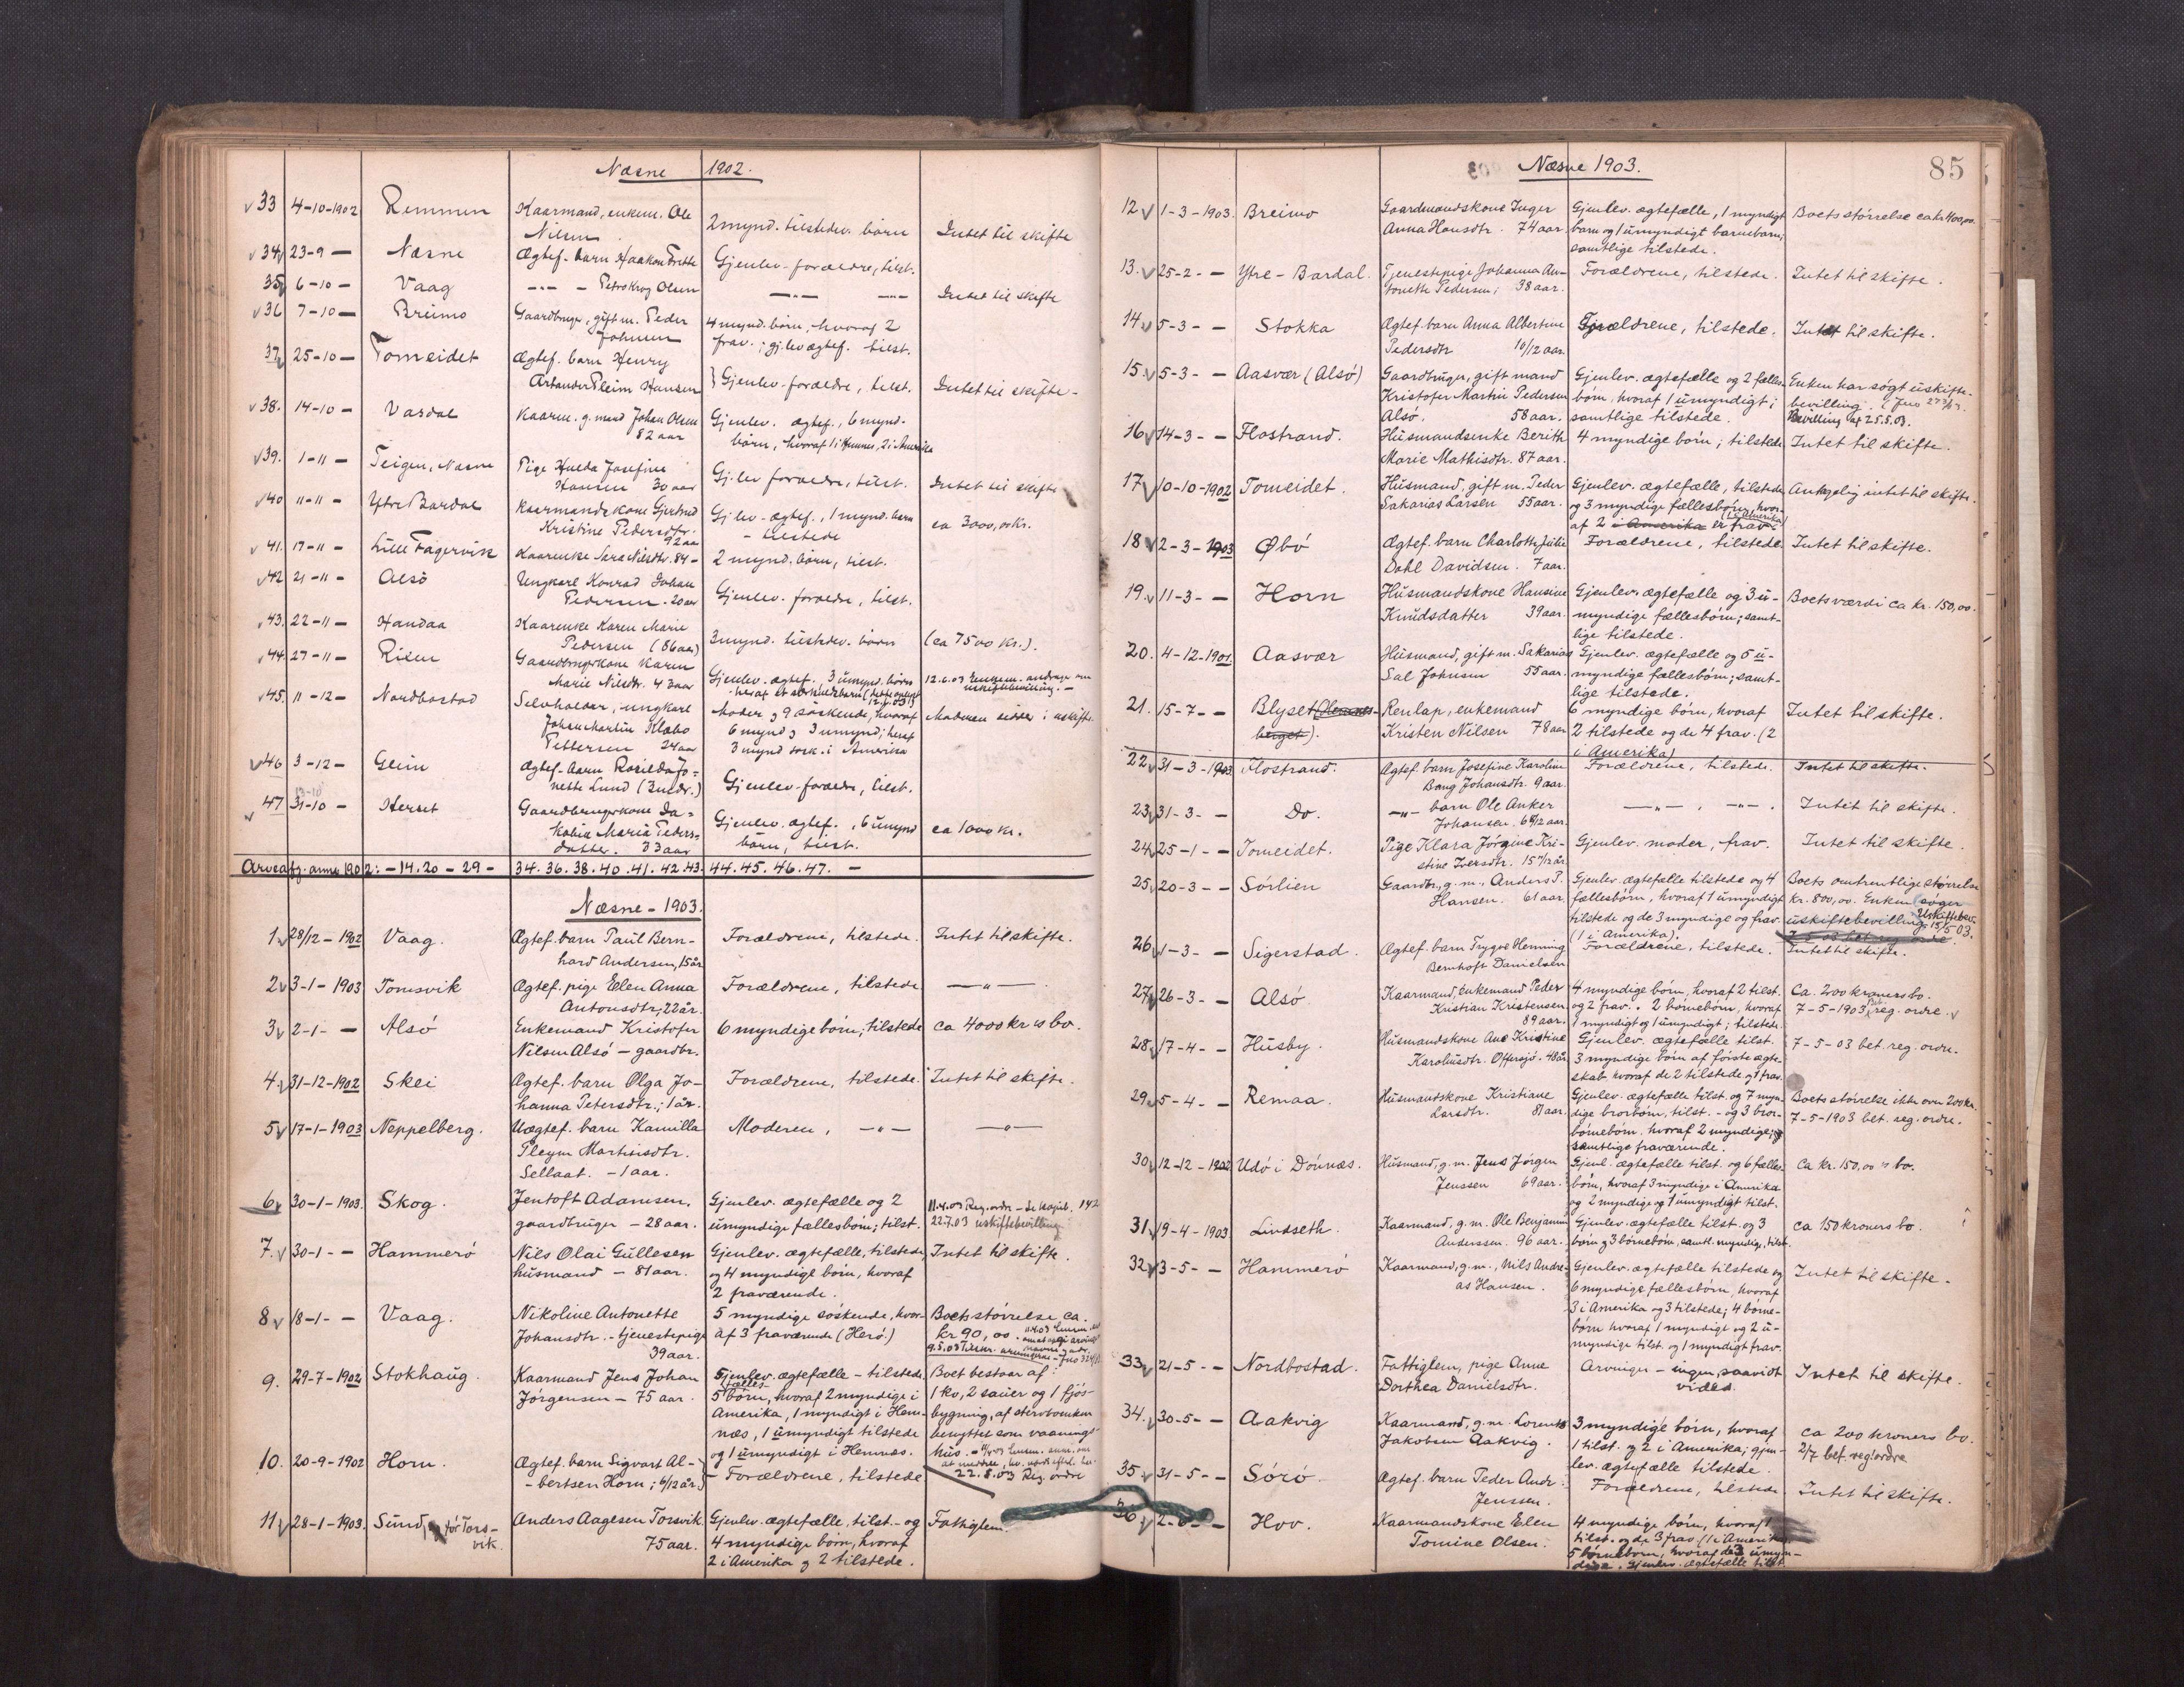 Næsne 1902.
33 4-10-1902 Remmen Kaarmand, enkem. Ole
Nilsen 2 mynd. tilstedev. børn Intet til skifte
34 23-9 — Næsne Ægtef. barn Haakon Gjenlev. forældre, tilst.
35 6-10 — Vaag —"— Petra Krog Olsen —"— —"— Intet til skifte
36 7-10 — Breimo Gaardbruger, gift m. Peder 4 mynd. børn, hvoraf 2
Johnsen frav.; gj.lev ægtef. tilst.
37 25-10 — Tomeidet Ægtef. barn Henry
Pleim Hansen } Gjenlev. forældre, tilst. Intet til skifte -
38. 14-10 — Vardal Kaarm. g. mand Johan Olsen Gjenlev. ægtef., 6 mynd.
82 aar børn, hvoraf 1 i Hemnes, 2 i Amerika
39. 1-11 — Teigen, Næsne Pige Hulda Josefine
Hansen 30 aar Gj.lev forældre, tilst. Intet til skifte
40 11-11 — Ytre Bardal Kaarmandskone Gjertrud Gj.lev. ægtef., 1 mynd. barn
Kristine Pedersdtr. - tilstede ca 3000,00 kr.
92 aar
41. 17-11 — Lille Fagervik Kaarenke Sara Nilsdtr. 84 - 2 mynd. børn, tilst.
42 21-11 — Alsö Ungkarl Konrad Johan
Pedersen. 20 aar Gjenlev. forældre, tilst.
43. 22-11 — Handaa Kaarenke Karen Marie
Pedersen (86 aar) 3 mynd. tilstedev. børn (ca 7500 kr.).
44. 27-11 — Risen Gaardbrugerkone Karen
Marie Nilsdtr. 43 aar Gjenlev. ægtef., 3 umynd. børn 12.6.03 Enkem. andrager om
uskiftebevilling. —
45. 11-12 — Nordbostad Selvholder, ungkarl Moder og 9 søskende, hvoraf Moderen sidder i uskifte.
Johan Martin Klæbo 6 mynd og 3 umynd; heraf
Pettersen 24 aar 3 mynd søsk. i Amerika
46 3-12 — Glein Ægtef. barn Rasilda Jo-
nette Lund (3 mdr.) Gjenlev. forældre, tilst.
13-10
47 31-10 — Herset Gaardbrugerkone Ja-
kobia Maria Peders- Gjenlev. ægtef., 6 umynd ca 1000 kr.
datter. 33 aar børn, tilst.
Arveafg. anm. 1902: - 14. 20 - 29 - 34. 36. 38. 40. 41. 42. 43. 44. 45. 46. 47. —
Næsne - 1903.
1. 28/12 - 1902 Vaag. Ægtef. barn Paul Bern- Forældrene, tilstede. Intet til skifte.
hard Andersen, 15 år
2 3-1-1903 Tomsvik Ægtef. pige Elen Anna Forældrene, tilstede —"—
Antonsdtr, 22 år.
3 2-1- — Alsö Enkemand Kristofer 6 myndige børn; tilstede ca 4000 kr's bo.
Nilsen Alsö - gaardbr.
4. 31-12-1902 Skei Ægtef. barn Olga Jo- Forældrene, tilstede. Intet til skifte.
hanna Petersdtr.; 1 år.
5 17-1-1903 Neppelberg. Uægtef. barn Kamilla Moderen, —"— —"—
Pleym Martinisdtr.
Sellaat. - 1 aar.
6 30-1-1903. Skog. Jentoft Adamsen, Gjenlev. ægtefælle og 2 11.4.03 Reg. ordre - 142
gaardbruger - 28 aar. umyndige fællesbørn; tilst. 22.7.03 uskiftebevilling
7. 30-1- — Hammerö Nils Olai Gullesen Gjenlev. ægtefælle, tilstede, Intet til skifte.
husmand - 81 aar. og 4 myndige børn, hvoraf
2 fraværende.
8 18-1- — Vaag. Nikoline Antonette 5 myndige søskende, hvor- Boets størrelse ca.
Johansdtr. - tjenestepige af 3 fraværende (Herö.) kr 90,00.
39 aar.
9. 29-7-1902 Stokhaug. Kaarmand Jens Johan Gjenlev. ægtefælle - tilstede Boet bestaar af
Jørgensen - 75 aar. 5 fælles børn, hvoraf 2 myndige i 1 ko, 2 sauer og 1 fjøs-
Amerika, 1 myndigt i Hem- bygning, af stervboenken
næs, 1 umyndigt tilstede benyttet som vaanings-
og 1 umyndigt i Hemnæs. hus. -
10. 20-9-1902 Horn. Ægtef. barn Sigvart Al-
bertsen Horn; 6/12 år. Forældrene, tilstede 22.8.03 Reg. ordre
11 28-1-1903. Sund, før Tors- Anders Aagesen Torsvik. Gjenlev. ægtefælle, tilst. - og Fattiglem.
vik. 75 aar. 4 myndige børn, hvoraf
2 i Amerika og 2 tilstede.
Næsne 1903. 85
12 1-3-1903. Breimo Gaardmandskone Inger Gjenlev. ægtefælle, 1 myndigt Boets størrelse ca kr. 400,00.
Anna Hansdtr. 74 aar. barn og 1 umyndigt barnebarn;
samtlige tilstede.
13. 25-2- — Ytre-Bardal. Tjenestepige Johanna An- Forældrene, tilstede. Intet til skifte.
tonette Pedersen; 38 aar.
14 5-3- — Stokka Ægtef. barn Anna Albertine Forældrene, tilstede. Intet til skifte.
Pedersdtr 10/12 aar.
15. 5-3- — Aasvær (Alsö) Gaardbruger, gift mand Gjenlev. ægtefælle og 2 fælles- Enken har søgt uskifte-
Kristofer Martin Pedersen børn, hvoraf 1 umyndigt; bevilling.
Alsö. 58 aar. samtlige tilstede. Bevilling 25.5.03.
16 14-3- — Flostrand. Husmandsenke Berith 4 myndige børn; tilstede Intet til skifte.
Marie Mathisdtr. 87 aar.
17 10-10-1902 Tomeidet. Husmand, gift m. Peder Gjenlev. ægtefælle, tilstede Antagelig intet til skifte.
Sakarias Larsen 55 aar. og 3 myndige fællesbørn, hvor-
af 2 i Amerika er frav. (i Amerika)
18 2-3-1903 Øbö Ægtef. barn Charlotte Julie Forældrene, tilstede. Intet til skifte.
Dahl Davidsen. 7 aar.
19. 11-3- — Horn Husmandskone Hansine Gjenlev. ægtefælle og 3 u- Boets værdi ca kr. 150,00.
Knudsdatter 39 aar. myndige fællesbørn; samt-
lige tilstede.
20. 4-12-1901. Aasvær Husmand, gift m. Sakarias Gjenlev. ægtefælle og 5 u-
Sal Johnsen 55 aar. myndige fællesbørn; samt-
lige tilstede.
21. 15-7- — Blyset Renlap, enkemand 6 myndige børn, hvoraf Intet til skifte.
Kristen Nilsen 78 aar 2 tilstede og de 4 frav. (2
i Amerika)
22 31-3-1903. Flostrand. Ægtef. barn Josefine Karoline Forældrene, tilstede. Intet til skifte.
Bang Johansdtr. 9 aar.
23 31-3- — Do. —"— barn Ole Anker —"—, —"—. Intet til skifte.
Johansen, 6 6/12 aar.
24 25-1- — Tomeidet. Pige Klara Jørgine Kri- Gjenlev. moder, frav. Intet til skifte.
stine Iversdtr. 15 år.
25 20-3- — Sörlien Gaardbr., g. m., Anders P. Gjenlev. ægtefælle tilstede og 4 Boets omtrentlige størrelse
Hansen. 61 aar. fællesbørn, hvoraf 1 umyndigt kr. 800,00. Enken søger
tilstede og de 3 myndige og frav. uskiftebevilling. Uskiftebev. 15/5 03.
(1 i Amerika).
26 1-3- — Sigerstad. Ægtef. barn Trygve Henning Forældrene, tilstede. Intet til skifte.
Bernhoft Danielsen
27 26-3- — Alsö Kaarmand, Enkemand Peder 4 myndige børn, hvoraf 2 tilst. Ca. 200 kroners bo.
Kristian Kristensen og 2 frav. 2 børnebørn, hvoraf 7-5-1903 Bet. reg. ordre.
89 aar. 1 myndigt og 1 umyndigt; tilstede.
28 17-4- — Husby. Husmandskone Ane Kristine Gjenlev. ægtefælle tilst. 7-5-03 bet. reg. ordre.
Karolusdtr. Offersjö. 48 år 3 myndige børn af første ægte-
skab hvoraf de 2 tilstede og 1 frav.
29 5-4- — Remaa. Husmandskone Kristiane Gjenlev. ægtefælle tilst. og 7 myn- Boets størrelse ikke over 200 kr.
Larsdtr. 81 aar. dige brorbørn, tilst. - og 3 bror- 7-5-1903 bet. reg. ordre.
børnebørn. hvoraf 2 myndige; og
samtlige fraværende.
30 12-12-1902 Udö i Dönnæs. Husmand, g. m. Jens Jörgen Gjenl. ægtefælle tilst. og 6 fælles- Ca kr. 150,00's bo.
Jenssen 69 aar. børn, hvoraf 3 myndige i Amerika
og 2 myndige og 1 umyndigt tilst.
31 19-4-1903. Lindseth. Kaarmand, g. m. Ole Benjamin Gjenlev. ægtefælle tilst. og 3 ca 150 kroners bo.
Anderssen. 96 aar. børn og 3 børnebørn, samtl. myndige, tilst.
32 3-5- — Hammerö Kaarmand, g. m., Nils Andre- Gjenlev. ægtefælle tilstede og Intet til skifte.
as Hansen. 6 myndige fællesbørn, hvoraf
3 i Amerika og 3 tilstede; 4 børne-
børn hvoraf 1 myndigt og 2 u-
myndige tilst. og 1 myndigt frav.
33 21-5- — Nordbostad. Fattiglem, pige Anne Arvinger - ingen, saavidt Intet til skifte.
Dorthea Danielsdtr. vides.
34. 30-5- — Aakvig Kaarmand, g. m. Lorents 3 myndige børn, hvoraf ca 200 kroners bo.
Jakobsen Aakvig. 1 tilst. og 2 i Amerika; gjen- 2/7 bet. reg. ordre
lev. ægtefælle tilstede.
35 31-5- — Sörö. Ægtef. barn Peder Andr. Forældrene, tilstede. Intet til skifte.
Jenssen.
36 2-6- — Hov. Kaarmandskone Elen 4 myndige børn, hvoraf 1
Tomine Olsen. tilst. og de 3 frav. (1 i Amerika)
5 børnebørn, hvoraf de 3 umyn-
dige. Gjenlev. ægtefælle tilst.